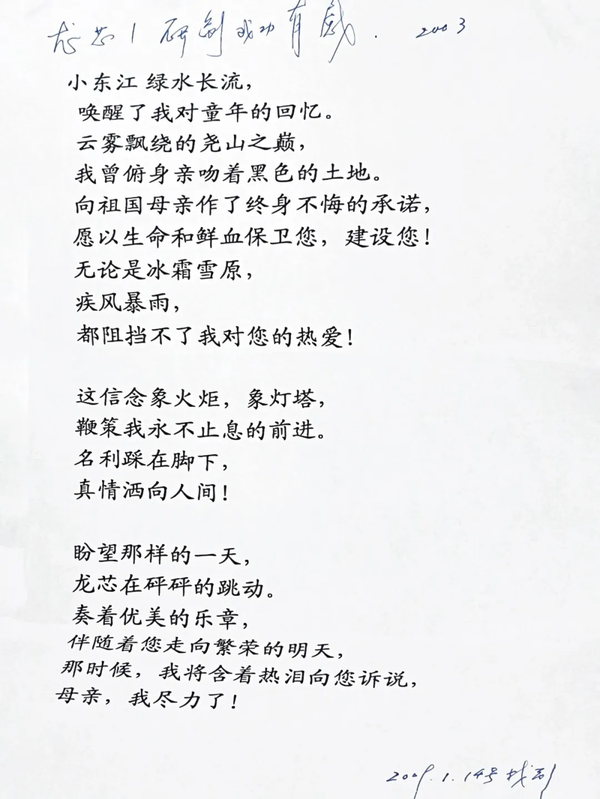 龙芯1研制成功有感. 2003
小东江 绿水长流，
唤醒了我对童年的回忆。
云雾飘绕的尧山之巅，
我曾俯身亲吻着黑色的土地。
向祖国母亲作了终身不悔的承诺，
愿以生命和鲜血保卫您，建设您！
无论是冰霜雪原，
疾风暴雨，
都阻挡不了我对您的热爱！
这信念象火炬，象灯塔，
鞭策我永不止息的前进。
名利踩在脚下，
真情洒向人间！
盼望那样的一天，
龙芯在砰砰的跳动。
奏着优美的乐章，
伴随着您走向繁荣的明天，
那时候，我将含着热泪向您诉说，
母亲，我尽力了！
2009.1.14号找到